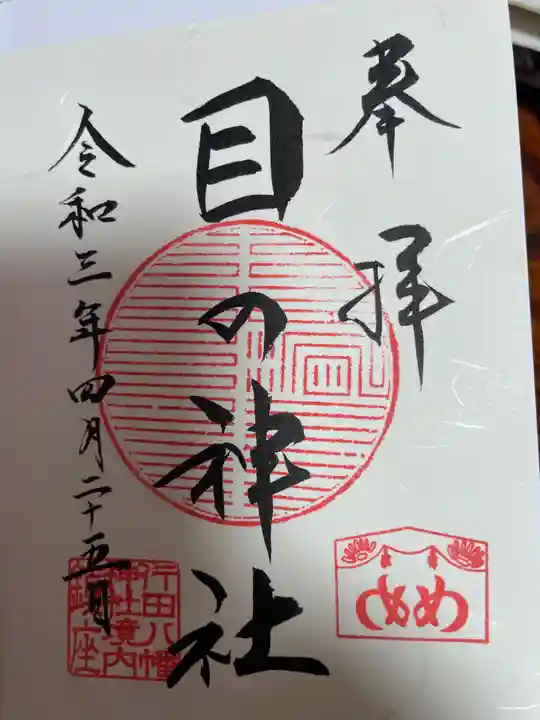 奉拝
目の神社
令和三年四月二十五日
行田八幡
神社境内
鎮座
め